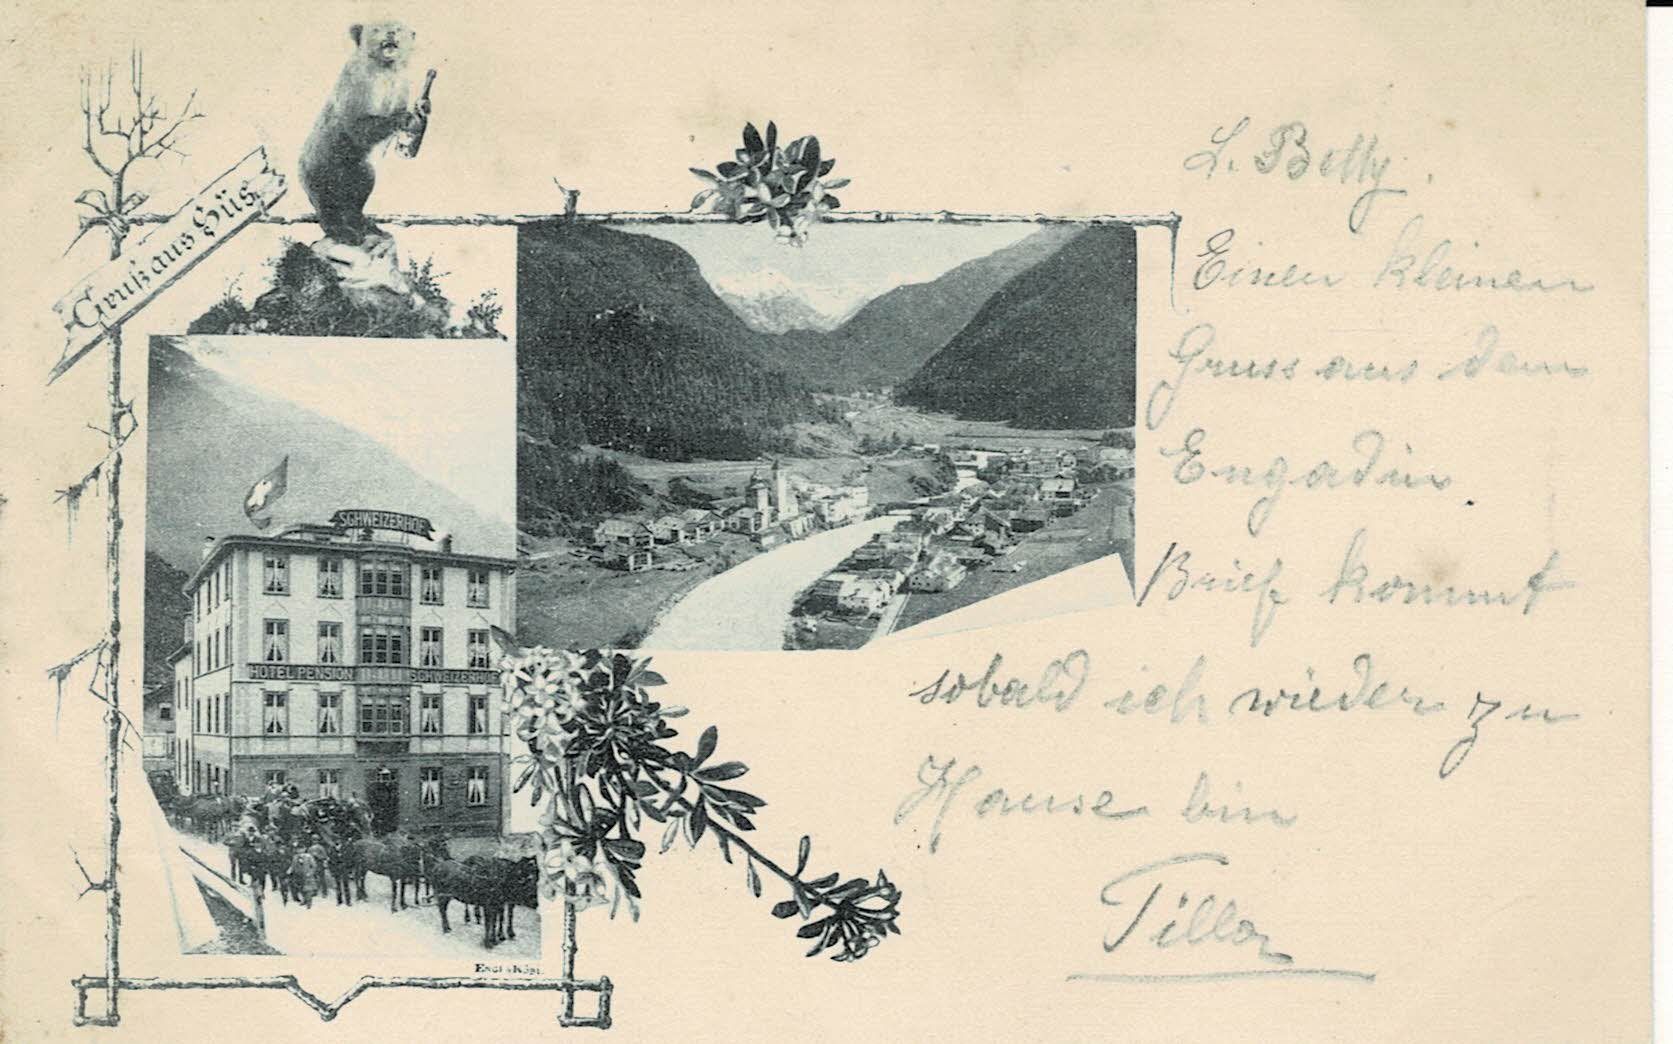 Gruß aus Süs
SCHWEIZERHOF
HOTEL PENSION SCHWEIZERHOF
L. Betty.
Einen kleinen
Gruss aus dem
Engadin
Brief kommt
sobald ich wieder zu
Hause bin
Tilla